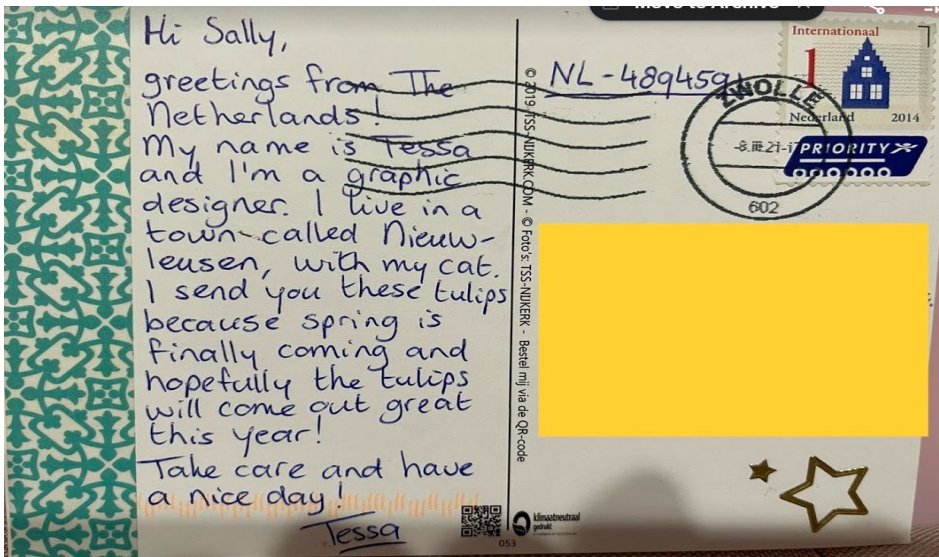 Hi Sally,
greetings from The
Netherlands!
My name is Tessa
and I'm a graphic
designer. I live in a
town called Nieuw-
leusen, with my cat.
I send you these tulips
because spring is
finally coming and
hopefully the tulips
will come out great
this year!
Take care and have
a nice day!
Tessa
© 2019 TSS-NIJKERK.COM - © Foto's: TSS-NIJKERK - Bestel mij via de QR-code
klimaatneutraal
gedrukt
053
NL-4894591
Internationaal
1
Nederland 2014
PRIORITY
ZWOLLE
-8.III.21-17
602
Move to Archive